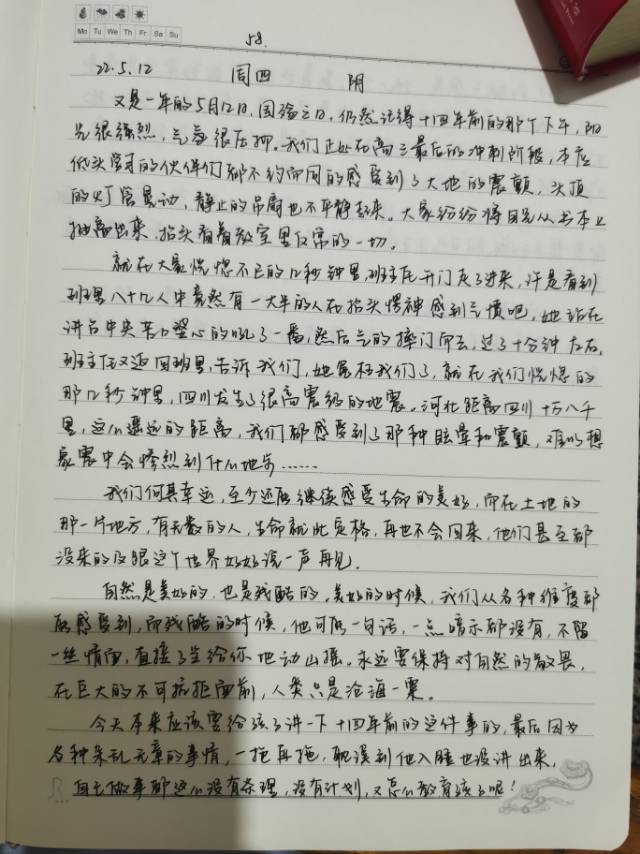 Mo Tu We Th Fr Sa Su
58.
22.5.12 周四 阴
又是一年的5月12日,国殇之日,仍然记得十四年前的那个下午,阳
光很强烈,气氛很压抑。我们正处在高三最后的冲刺阶段,本应
低头学习的伙伴们都不约而同的感受到了大地的震颤,头顶
的灯管晃动,静止的吊扇也不平静起来。大家纷纷将目光从书本上
抽离出来,抬头看着教室里反常的一切。
就在大家恍惚不已的几秒钟里,班主任开门走了进来,许是看到
班里八十几人中竟然有一大半的人在抬头愣神感到气愤吧,她站在
讲台中央苦口婆心的吼了一番,然后气的摔门而去,过了十分钟左右,
班主任又返回班里,告诉我们,她冤枉我们了,就在我们恍惚的
那几秒钟里,四川发生了很高震级的地震。河北距离四川十万八千
里,这么遥远的距离,我们都感受到了那种眩晕和震颤,难以想
象震中会惨烈到什么地步……
我们何其幸运,至少还能继续感受生命的美好,而在土地的
那一片地方,有无数的人,生命就此定格,再也不会回来,他们甚至都
没来的及跟这个世界好好说一声再见。
自然是美好的,也是残酷的,美好的时候,我们从各种维度都
能感受到,而残酷的时候,他可能一句话,一点暗示都没有,不留
一丝情面,直接了当给你地动山摇。永远要保持对自然的敬畏,
在巨大的不可抗拒面前,人类只是沧海一粟。
今天本来应该要给孩子讲一下十四年前的这件事的,最后因为
各种杂乱无章的事情,一拖再拖,耽误到他入睡也没讲出来,
自己做事都这么没有条理,没有计划,又怎么教育孩子呢!